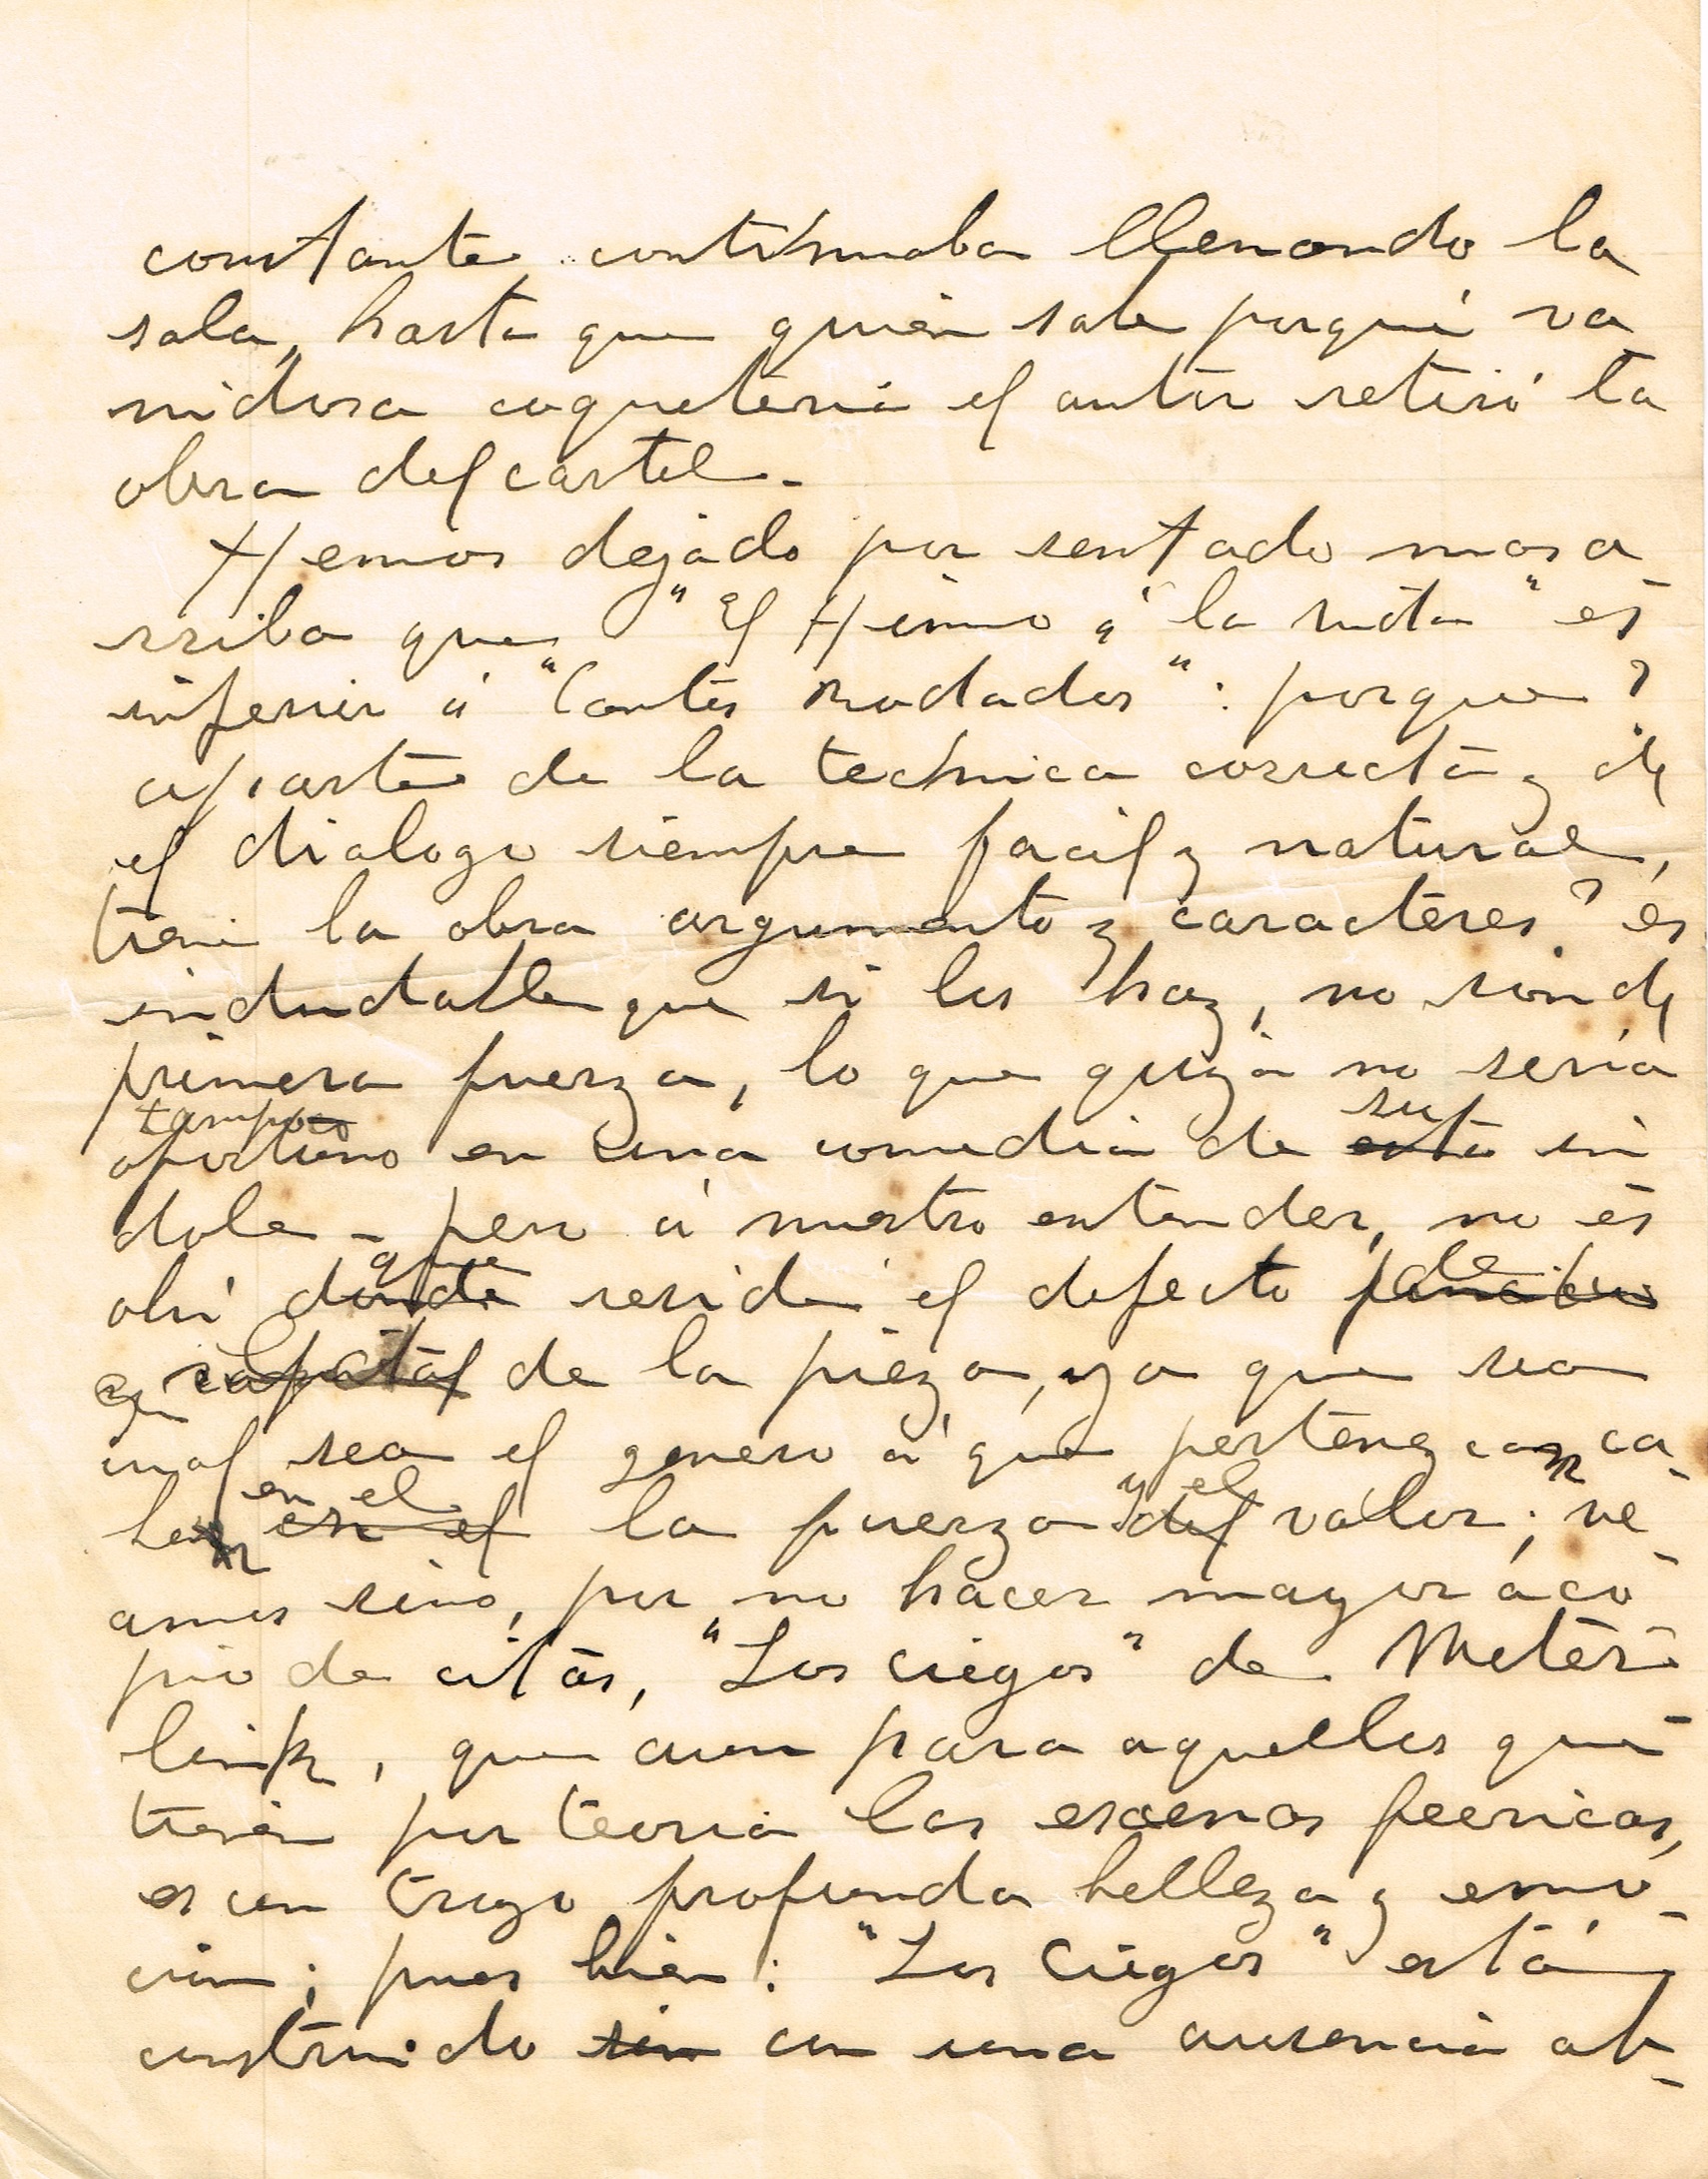 constante continuaba llenando la
sala, hasta que quién sabe porqué va
nidosa coqueteria el autor retiró la
obra del cartel.-
Hemos dejado por sentado mas a
rriba que "El Himno á la vida" es
inferior á "Cantos Rodados": porque?
aparte de la technica correcta y de
el dialogo siempre facil y natural,
tiene la obra argumento y caracteres? es
indudable que si los hay, no son de
primera fuerza, lo que quizá no seria
tampoco
oportuno en una comedia de esta in
su
dole - pero á nuestro entender, no es
que
ahi donde reside el defecto
de
capital de la pieza, ya que sea
cual sea el genero á que pertenezcan ca-
en el y el
ben en el la fuerza del valor; ve-
amos sino, por no hacer mayor aco
pio de citas, "Los ciegos" de Meter-
link, que aun para aquellos que
tienen por teoria las escenas feericas,
es un trozo profunda belleza y emo-
cion; pues bien: "Los Ciegos" está
construido sin con una ausencia ab-